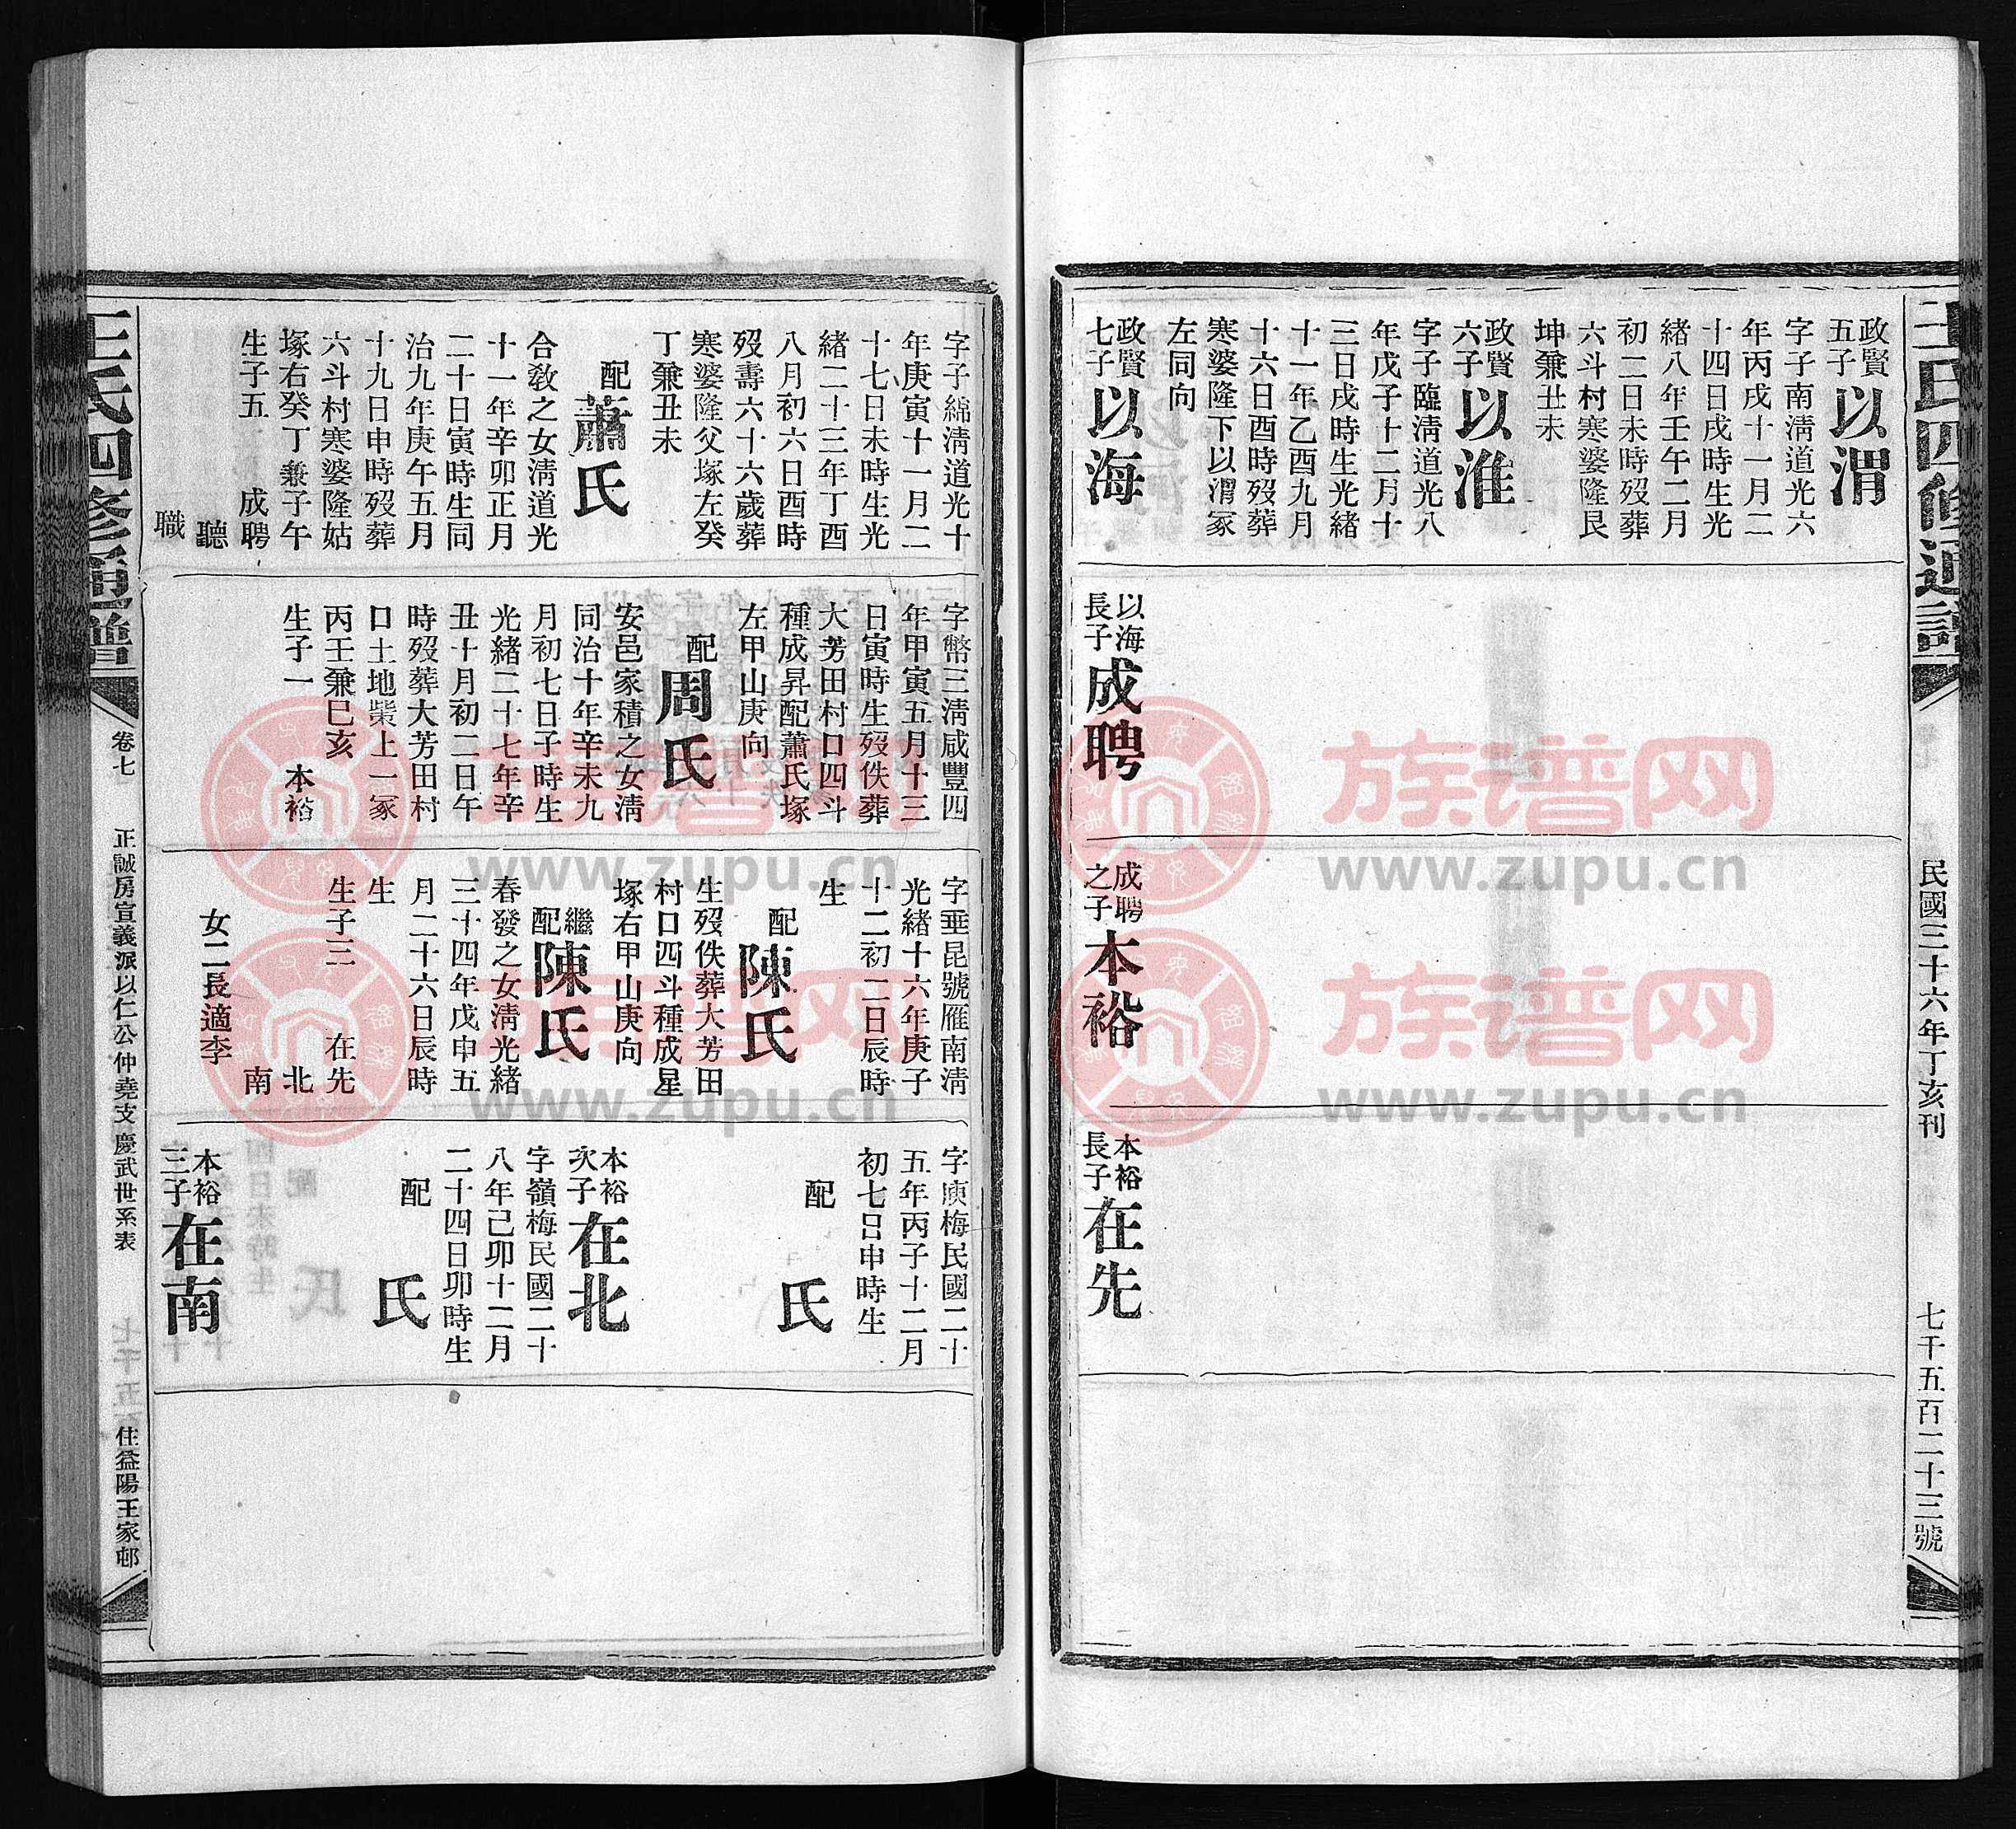 王氏四修通譜
民國三十六年丁亥刊
七千五百二十三號
政賢
五子
以渭
字子南淸道光六
年丙戌十一月二
十四日戌時生光
緒八年壬午二月
初二日未時歿葬
六斗村寒婆隆艮
坤兼丑未
政賢
六子
以淮
字子臨淸道光八
年戊子十二月十
三日戌時生光緒
十一年乙酉九月
十六日酉時歿葬
寒婆隆下以渭冢
左同向
政賢
七子
以海
以海
長子
成聘
成聘
之子
本裕
本裕
長子
在先
字子綿淸道光十
年庚寅十一月二
十七日未時生光
緒二十三年丁酉
八月初六日酉時
歿壽六十六歲葬
寒婆隆父塚左癸
丁兼丑未
配
蕭氏
合敎之女淸道光
十一年辛卯正月
二十日寅時生同
治九年庚午五月
十九日申時歿葬
六斗村寒婆隆姑
塚右癸丁兼子午
生子五 成聘
聽
職
字幣三淸咸豐四
年甲寅五月十三
日寅時生歿佚葬
大芳田村口四斗
種成昇配蕭氏塚
左甲山庚向
配
周氏
安邑家積之女淸
同治十年辛未九
月初七日子時生
光緒二十七年辛
丑十月初二日午
時歿葬大芳田村
口土地柴上一冢
丙壬兼巳亥
生子一 本裕
字垂昆號雁南淸
光緒十六年庚子
十二初二日辰時
生
配
陳氏
生歿佚葬大芳田
村口四斗種成星
塚右甲山庚向
繼
配
陳氏
春發之女淸光緒
三十四年戊申五
月二十六日辰時
生
生子三 在先
北
南
女二長適李
字庾梅民國二十
五年丙子十二月
初七日申時生
配 氏
本裕
次子
在北
字嶺梅民國二十
八年己卯十二月
二十四日卯時生
配 氏
本裕
三子
在南
王氏四修通譜
卷七
正誠房宣義派以仁公仲堯支慶武世系表
住益陽王家邨
族谱网
www.zupu.cn
族谱网
www.zupu.cn
族谱网
www.zupu.cn
族谱网
www.zupu.cn